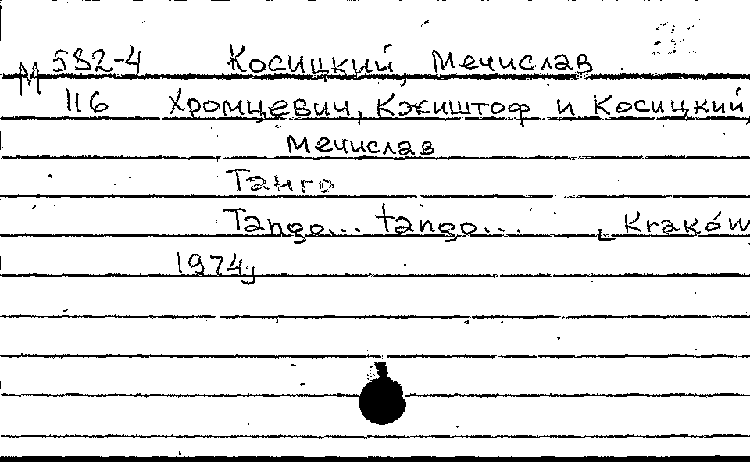 М 532-4 Косицкий, Мечислав
116 Хромцевич, Кжиштоф и Косицкий,
Мечислав
Танго
Tango... tango... [Kraków,
1974]